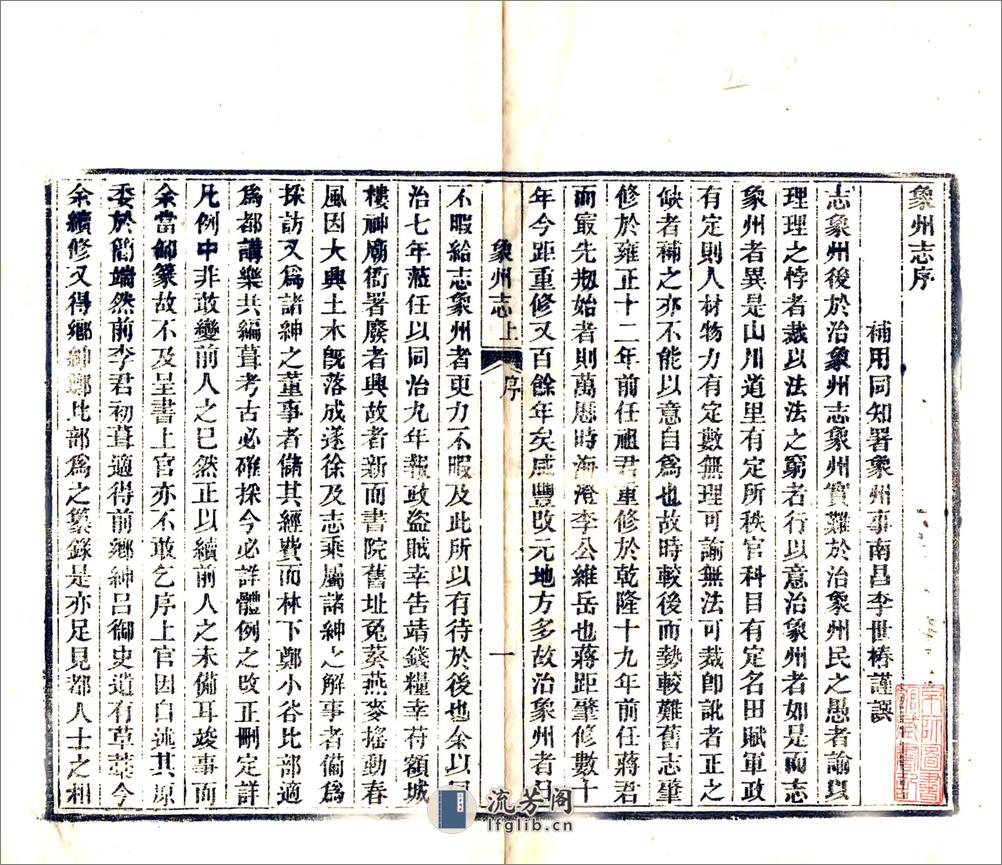 象州志序
補用同知署象州事南昌李世椿謹譔
志象州後於治象州志象州實難於治象州民之愚者諭以
理理之悖者裁以法法之窮者行以意治象州者如是而志
象州者異是山川道里有定所秩官科目有定名田賦軍政
有定則人材物力有定數無理可諭無法可裁卽訛者正之
缺者補之亦不能以意自爲也故時較後而勢較難舊志肇
修於雍正十二年前任祖君重修於乾隆十九年前任蔣君
而最先刱始者則萬曆時海澄李公維岳也蔣距肇修數十
年今距重修又百餘年矣咸豐改元地方多故治象州者日
象州志上
序
一
不暇給志象州者更力不暇及此所以有待於後也余以同
治七年蒞任以同治九年報政盜賊幸吿靖錢糧幸苻額城
樓神廟衙署廢者興故者新而書院舊址兔葵燕麥搖動春
風因大興土木旣落成遂徐及志乘屬諸紳之解事者備爲
採訪又爲諸紳之董事者儲其經費而林下鄭小谷比部適
爲都講樂共編葺考古必確採今必詳體例之改正刪定詳
凡例中非敢變前人之已然正以續前人之未備耳竣事而
余當卸篆故不及呈書上官亦不敢乞序上官因自述其原
委於簡端然前李君初葺適得前鄉紳呂御史道有草藁今
余續修又得鄉紳鄭比部爲之纂錄是亦足見都人士之相
流芳閣
lfglib.cn